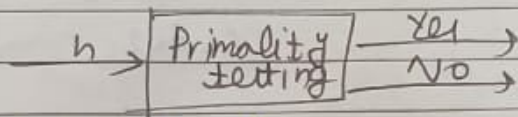 n
Primality
testing
Yes
No